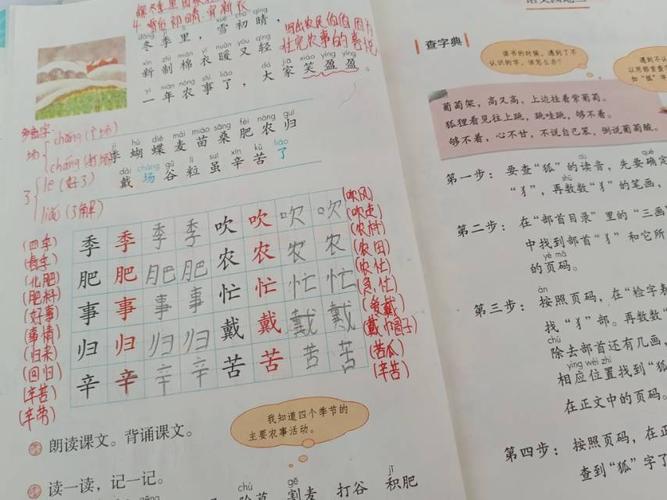 冬季里，雪初晴，
新制棉衣暖又轻，
一年农事了，大家笑盈盈。
季蝴蝶麦苗桑肥农归
戴场谷粒虽辛苦了
多音字
场
cháng(打场)
了
le(好了)
liǎo(了解)
季季季季吹吹吹吹
肥肥肥肥农农农农
事事事事忙忙忙忙
归归归归戴戴戴戴
辛辛辛辛苦苦苦苦
(四季)
(春季)
(化肥)
(肥料)
(好事)
(事情)
(归来)
(回归)
(辛苦)
(辛劳)
(吹风)
(吹走)
(农村)
(农田)
(农忙)
(急忙)
(爱戴)
(戴帽子)
(苦瓜)
(辛苦)
我知道四个季节的
主要农事活动。
朗读课文。背诵课文。
读一读，记一记。
chú gē jī
除草 割麦 打谷 积肥
查字典
读书的时候，遇到了不
认识的字，该怎么办？
葡萄架，高又高，上边挂着紫葡萄。
狐狸看见往上跳，跳哇跳，够不着，
够不着，心不甘，不说自己笨，倒说葡萄酸。
第一步：要查“狐”的读音，先要确定
“犭”，再数数“犭”的笔画，
第二步：在“部首目录”里的“三画”
中找到部首“犭”和它所
yè mǎ
的页码。
àn
第三步：按照页码，在“检字表
找“犭”部。再数数“
chú
除去部首还有几画，
yìng wèi zhì
相应位置找到“狐
在正文中的页码。
第四步：按照页码，在正
查到“狐”字了